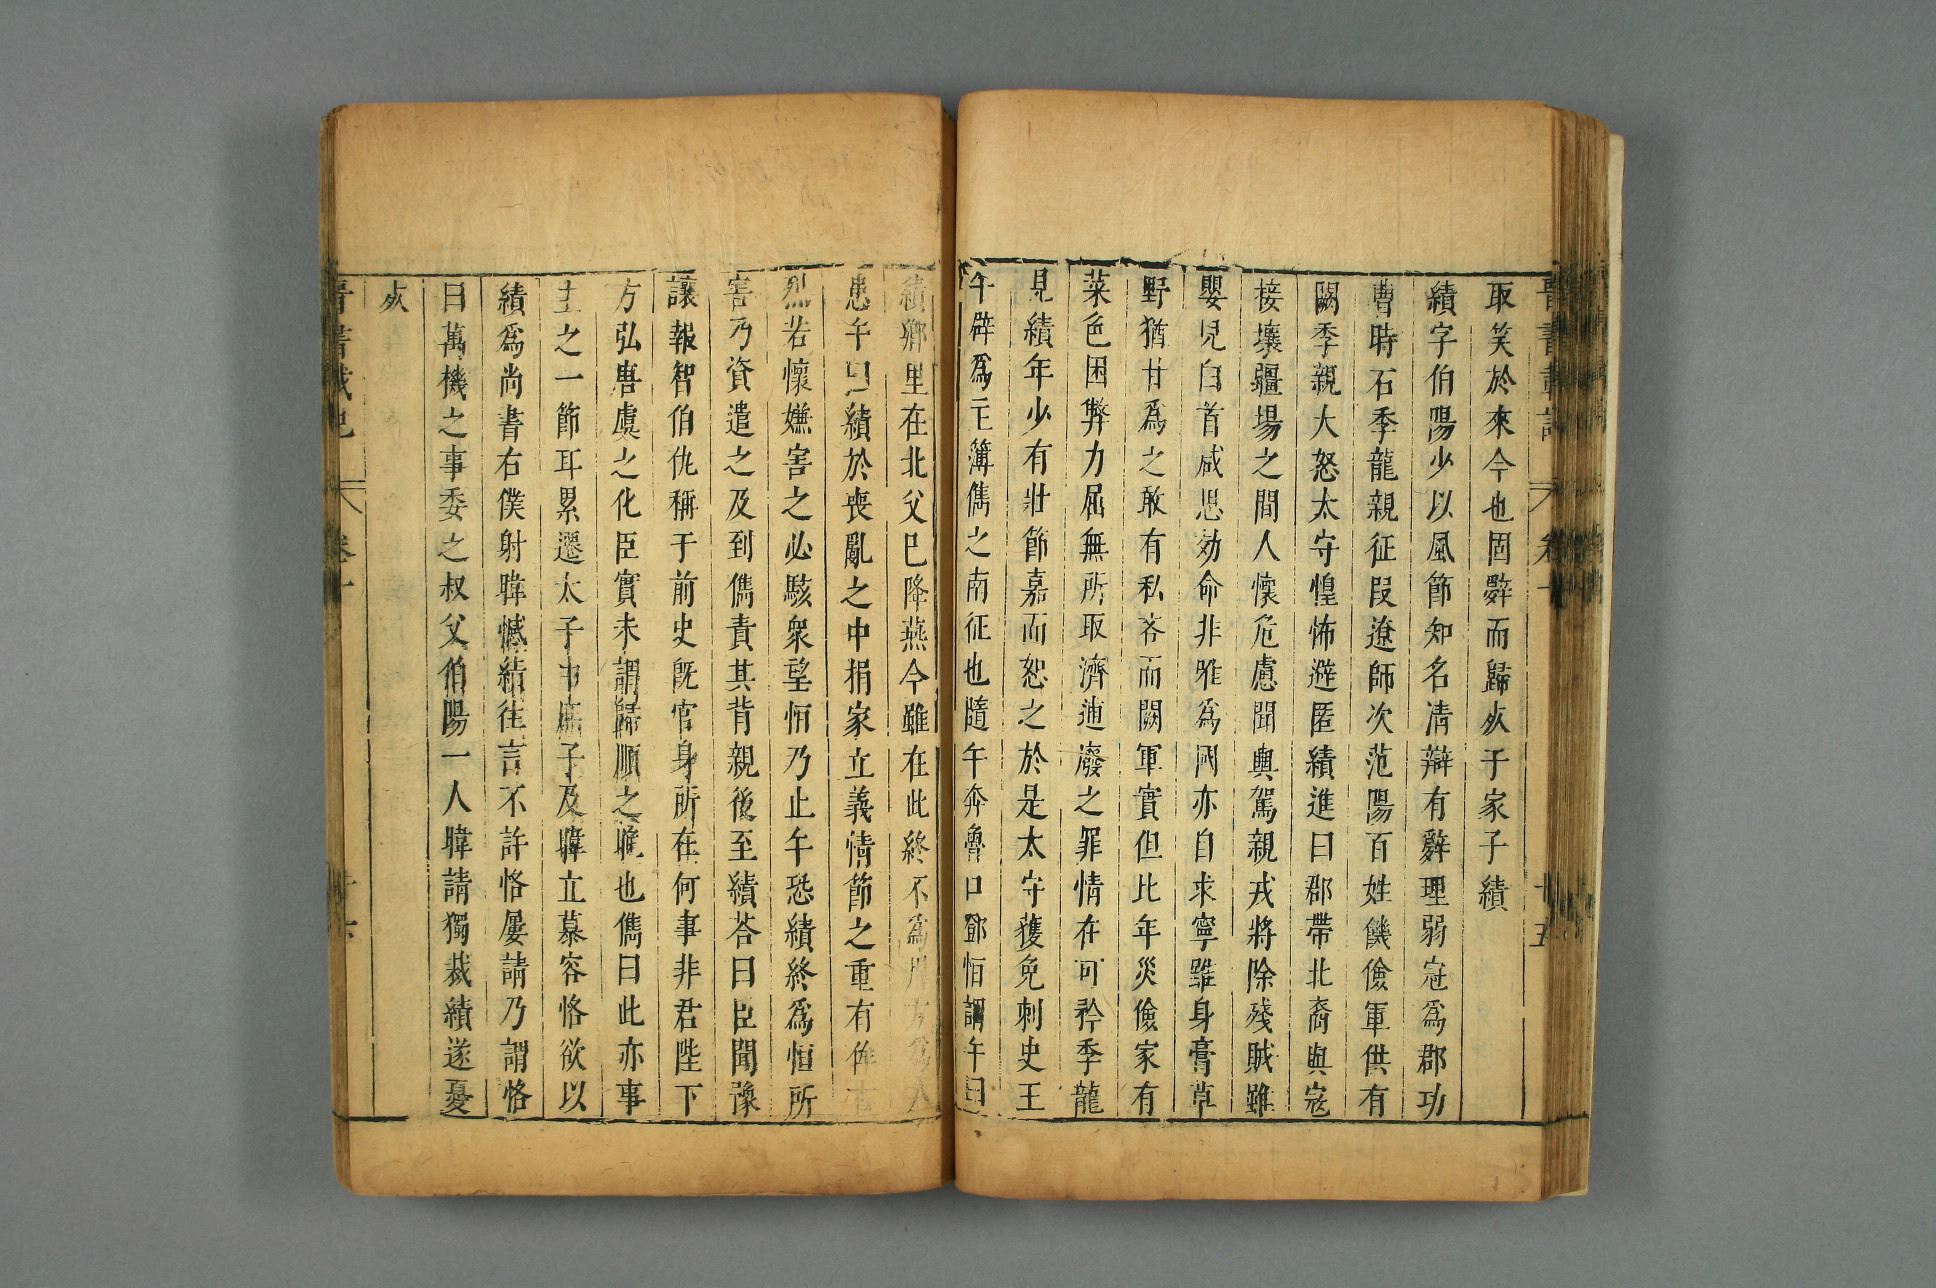 取笑於來今也固辭而歸死于家子績
績字伯陽少以風節知名清辯有辭理弱冠爲郡功
曹時石季龍親征段遼師次范陽百姓饑儉軍供有
闕季龍大怒太守惶怖避匿績進曰郡帶北裔與寇
接壤疆場之間人懷危慮聞輿駕親戎將除殘賊雖
嬰兒白首咸思効命非唯爲國亦自求寧雖身膏草
野猶甘爲之敢有私吝而闕軍實但比年災儉家有
菜色困弊力屈無所取濟逋廢之罪情在可矜季龍
見績年少有壯節嘉而恕之於是太守獲免刺史王
午辟爲主簿儁之南征也隨午奔魯口鄧恒謂午曰
績鄉里在北父已降燕今雖在此終不爲用方爲人
患午曰績於喪亂之中捐家立義情節之重有侔古
烈若懷嫌害之必駭衆望恒乃止午恐績終爲恒所
害乃資遣之及到儁責其背親後至績荅曰臣聞豫
讓報智伯仇稱于前史旣官身所在何事非君陛下
方弘唐虞之化臣實未謂歸順之晩也儁曰此亦事
主之一節耳累遷太子中庶子及暐立慕容恪欲以
績爲尚書右僕射暐憾績往言不許恪屢請乃謂恪
曰萬機之事委之叔父伯陽一人暐請獨裁績遂憂
死
卷十